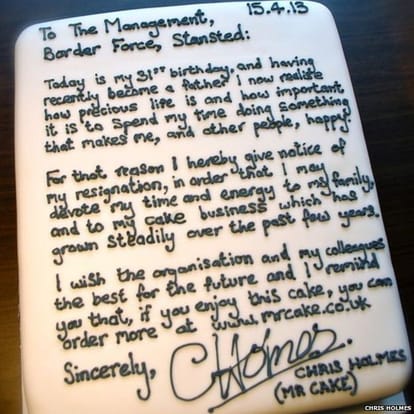 15.4.13
To The Management,
Border Force, Stansted:
Today is my 31st birthday, and having
recently become a father I now realise
how precious life is and how important
it is to spend my time doing something
that makes me, and other people, happy.
For that reason I hereby give notice of
my resignation, in order that I may
devote my time and energy to my family,
and to my cake business which has
grown steadily over the past few years.
I wish the organisation and my colleagues
the best for the future and I remind
you that, if you enjoy this cake, you can
order more at www.mrcake.co.uk
Sincerely, CHolmes.
CHRIS HOLMES
(MR CAKE)
CHRIS HOLMES